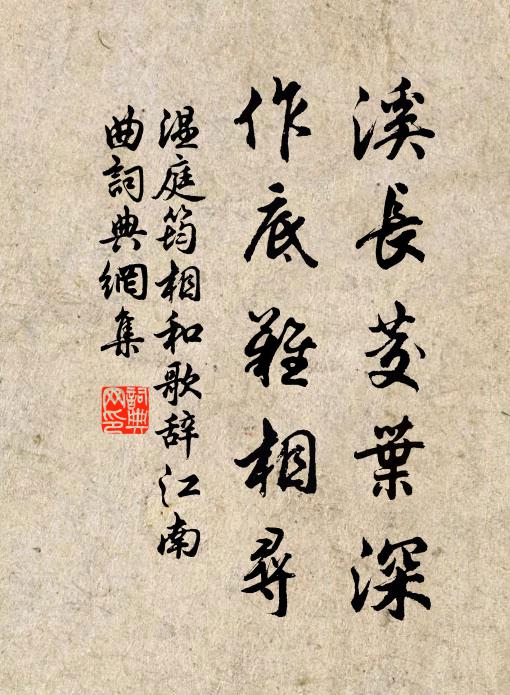 溪長芰葉深
作底難相尋
溫庭筠相和歌辭江南
曲詞典網集
詞典
网印